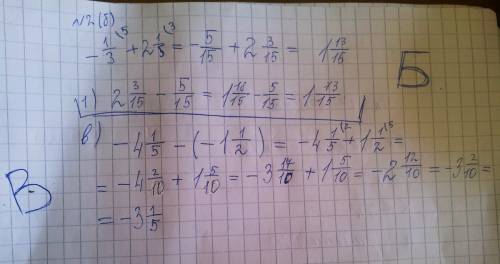 №2 (б)
-1/3^5 + 2 1/5^3 = -5/15 + 2 3/15 = 1 13/15
1) 2 3/15 - 5/15 = 1 18/15 - 5/15 = 1 13/15
Б
в) -4 1/5 - (-1 1/2) = -4 1/5^2 + 1 1/2^5 =
= -4 2/10 + 1 5/10 = -3 17/10 + 1 5/10 = -2 12/10 = -3 2/10 =
= -3 1/5
В